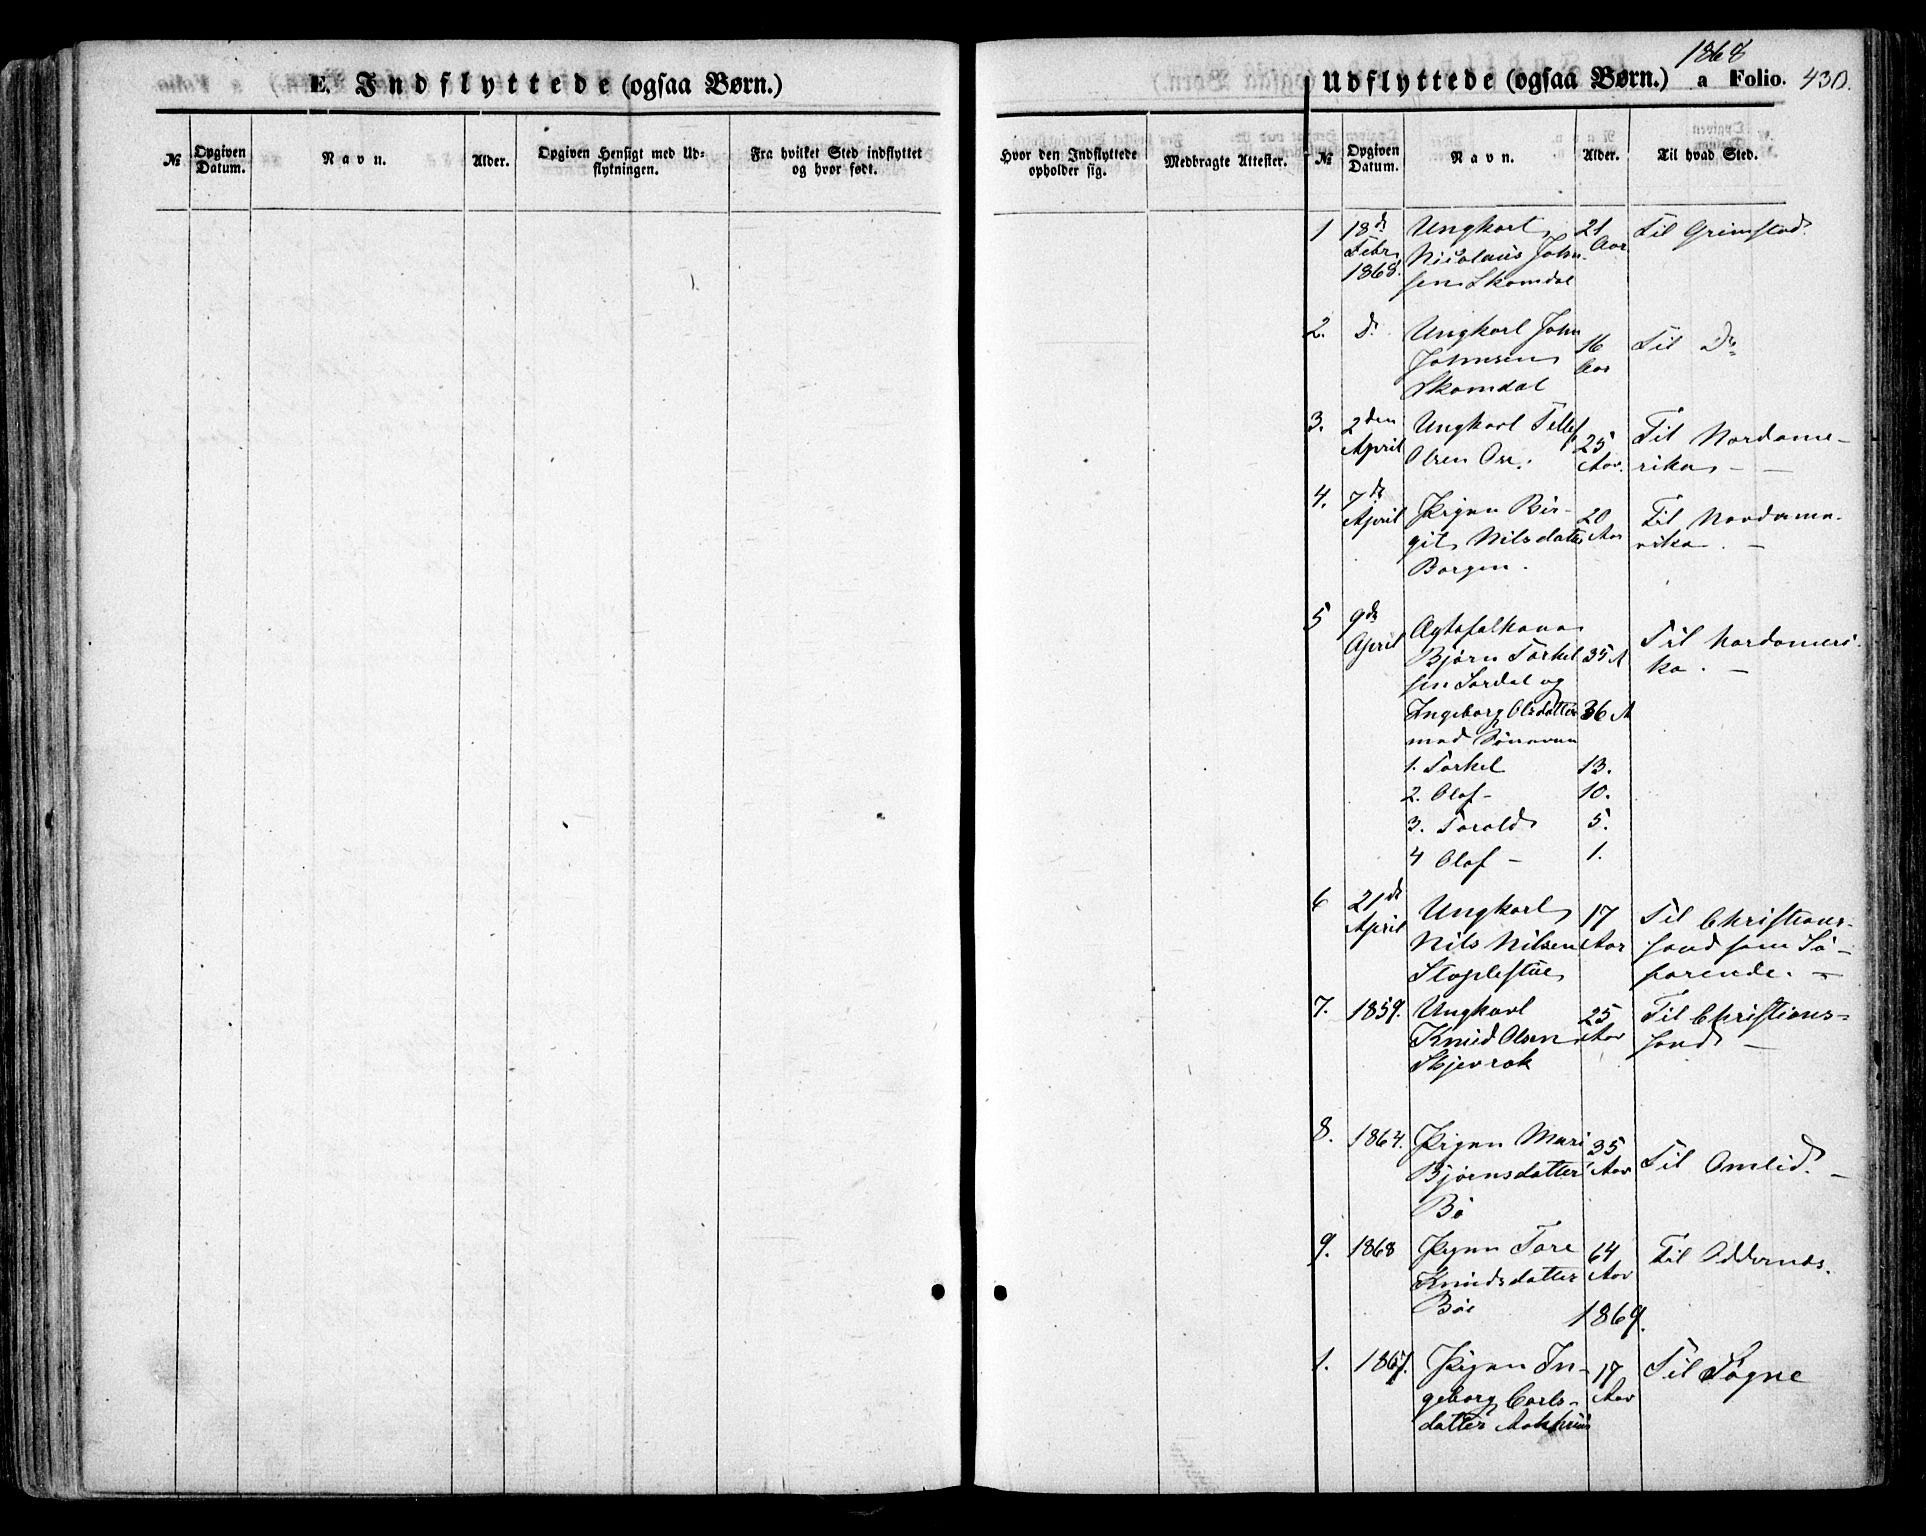 E. Indflyttede (ogsaa Børn.)
№
Opgiven Datum.
Navn.
Alder.
Opgiven Hensigt med Ud-
flytningen.
Fra hvilket Sted indflyttet
og hvor født.
Hvor den Indflyttede
opholder sig.
Medbragte Attester.
1868
Udflyttede (ogsaa Børn.) a Folio. 430.
№
Opgiven Datum.
Navn.
Alder.
Til hvad Sted.
1 18d Ungkarl 21 Til Grimstad.
Febr Nicolaus John- Aar
1868. sen Skomdal
2. d. Ungkarl John 16 Til Do
Johnsen Aar
Skomdal
3. 2den Ungkarl Tellef 25 Til Nordame-
April Olsen Ose. Aar. rika —
4. 7de Pigen Bir- 20 Til Nordame-
April git Nilsdatter Aar rika. —
Borgen.
5 9de Ægtefolkene Til Nordameri-
April Bjørn Torkel- 35 A ka. —
sen Sordal og
Ingeborg Olsdatter 36 A
med Sønnerne
1. Torkel 13.
2. Olaf — 10.
3. Torald 5.
4 Olaf — 1.
6 21de Ungkarl 17 Til Christians-
April Nils Nilsen Aar sand som Sø-
Staplestue farende. —
7. 1859. Ungkarl 25 Til Christians-
Knud Olsen Aar sand —
Skjevrak
8. 1864. Pigen Mari 35 Til Omlid. —
Bjørnsdatter Aar
Bø
9. 1868 Pigen Tore 64 Til Oddernæs.
Knudsdatter Aar
Bøe
1869.
1. 1867. Pigen In- 17 Til Søgne
geborg Carls- Aar
datter